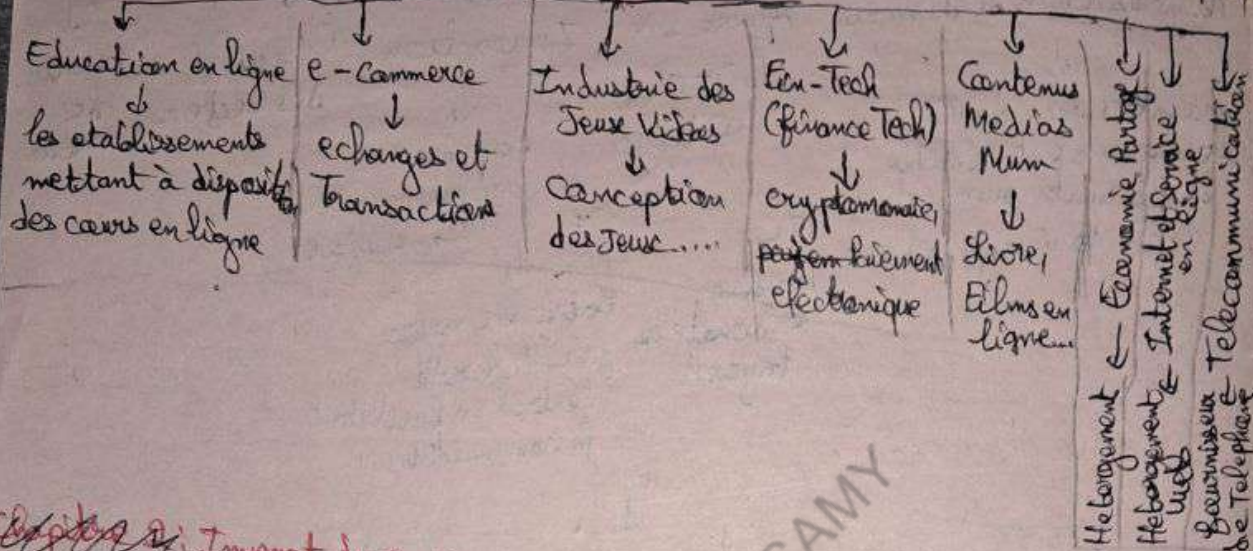 Education en ligne
les etablissements
mettant à disposit
des cours en ligne
e-Commerce
echanges et
Transactions
Industrie des
Jeux Videos
Conception
des Jeux.....
Fin-Tech
(finance Tech)
cryptomonaie,
paiement
electronique
Contenus
Medias
Num
Livre,
Films en
ligne...
Economie Partag
Hebergement
Internet et Service
en ligne
Hebergement
Web
Telecommunication
Fournisseur
de Telephone
CAMY